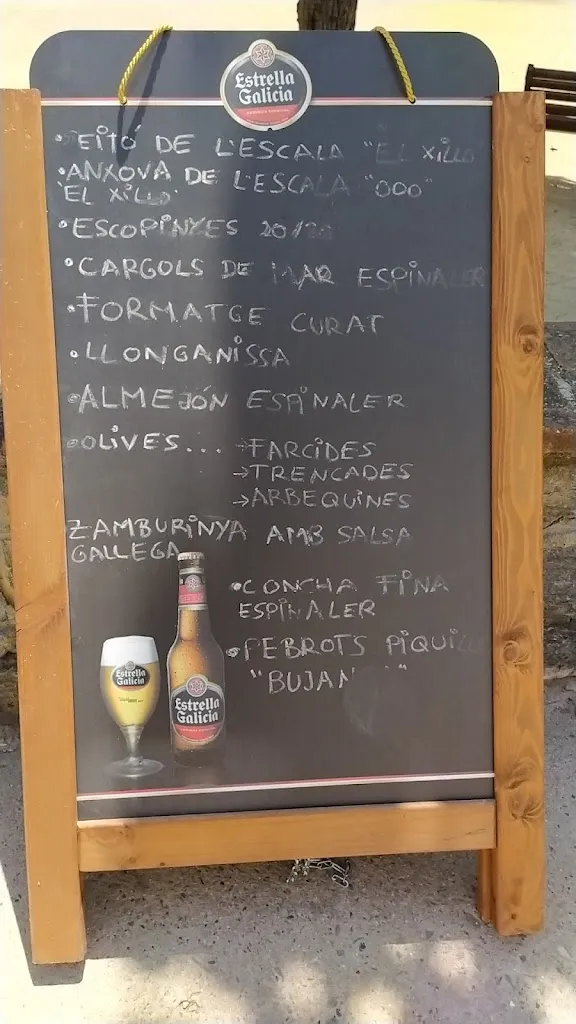 Estrella
Galicia
•EITÓ DE L'ESCALA "EL XILLO
•ANXOVA DE L'ESCALA "OOO"
"EL XILLO"
•ESCOPINYES 20/30
•CARGOLS DE MAR ESPINALER
•FORMATGE CURAT
•LLONGANISSA
•ALMEJÓN ESPINALER
•OLIVES... →FARCIDES
→TRENCADES
→ARBEQUINES
ZAMBURINYA AMB SALSA
GALLEGA
•CONCHA FINA
ESPINALER
•PEBROTS PIQUILLO
Estrella
Galicia
Estrella
Galicia